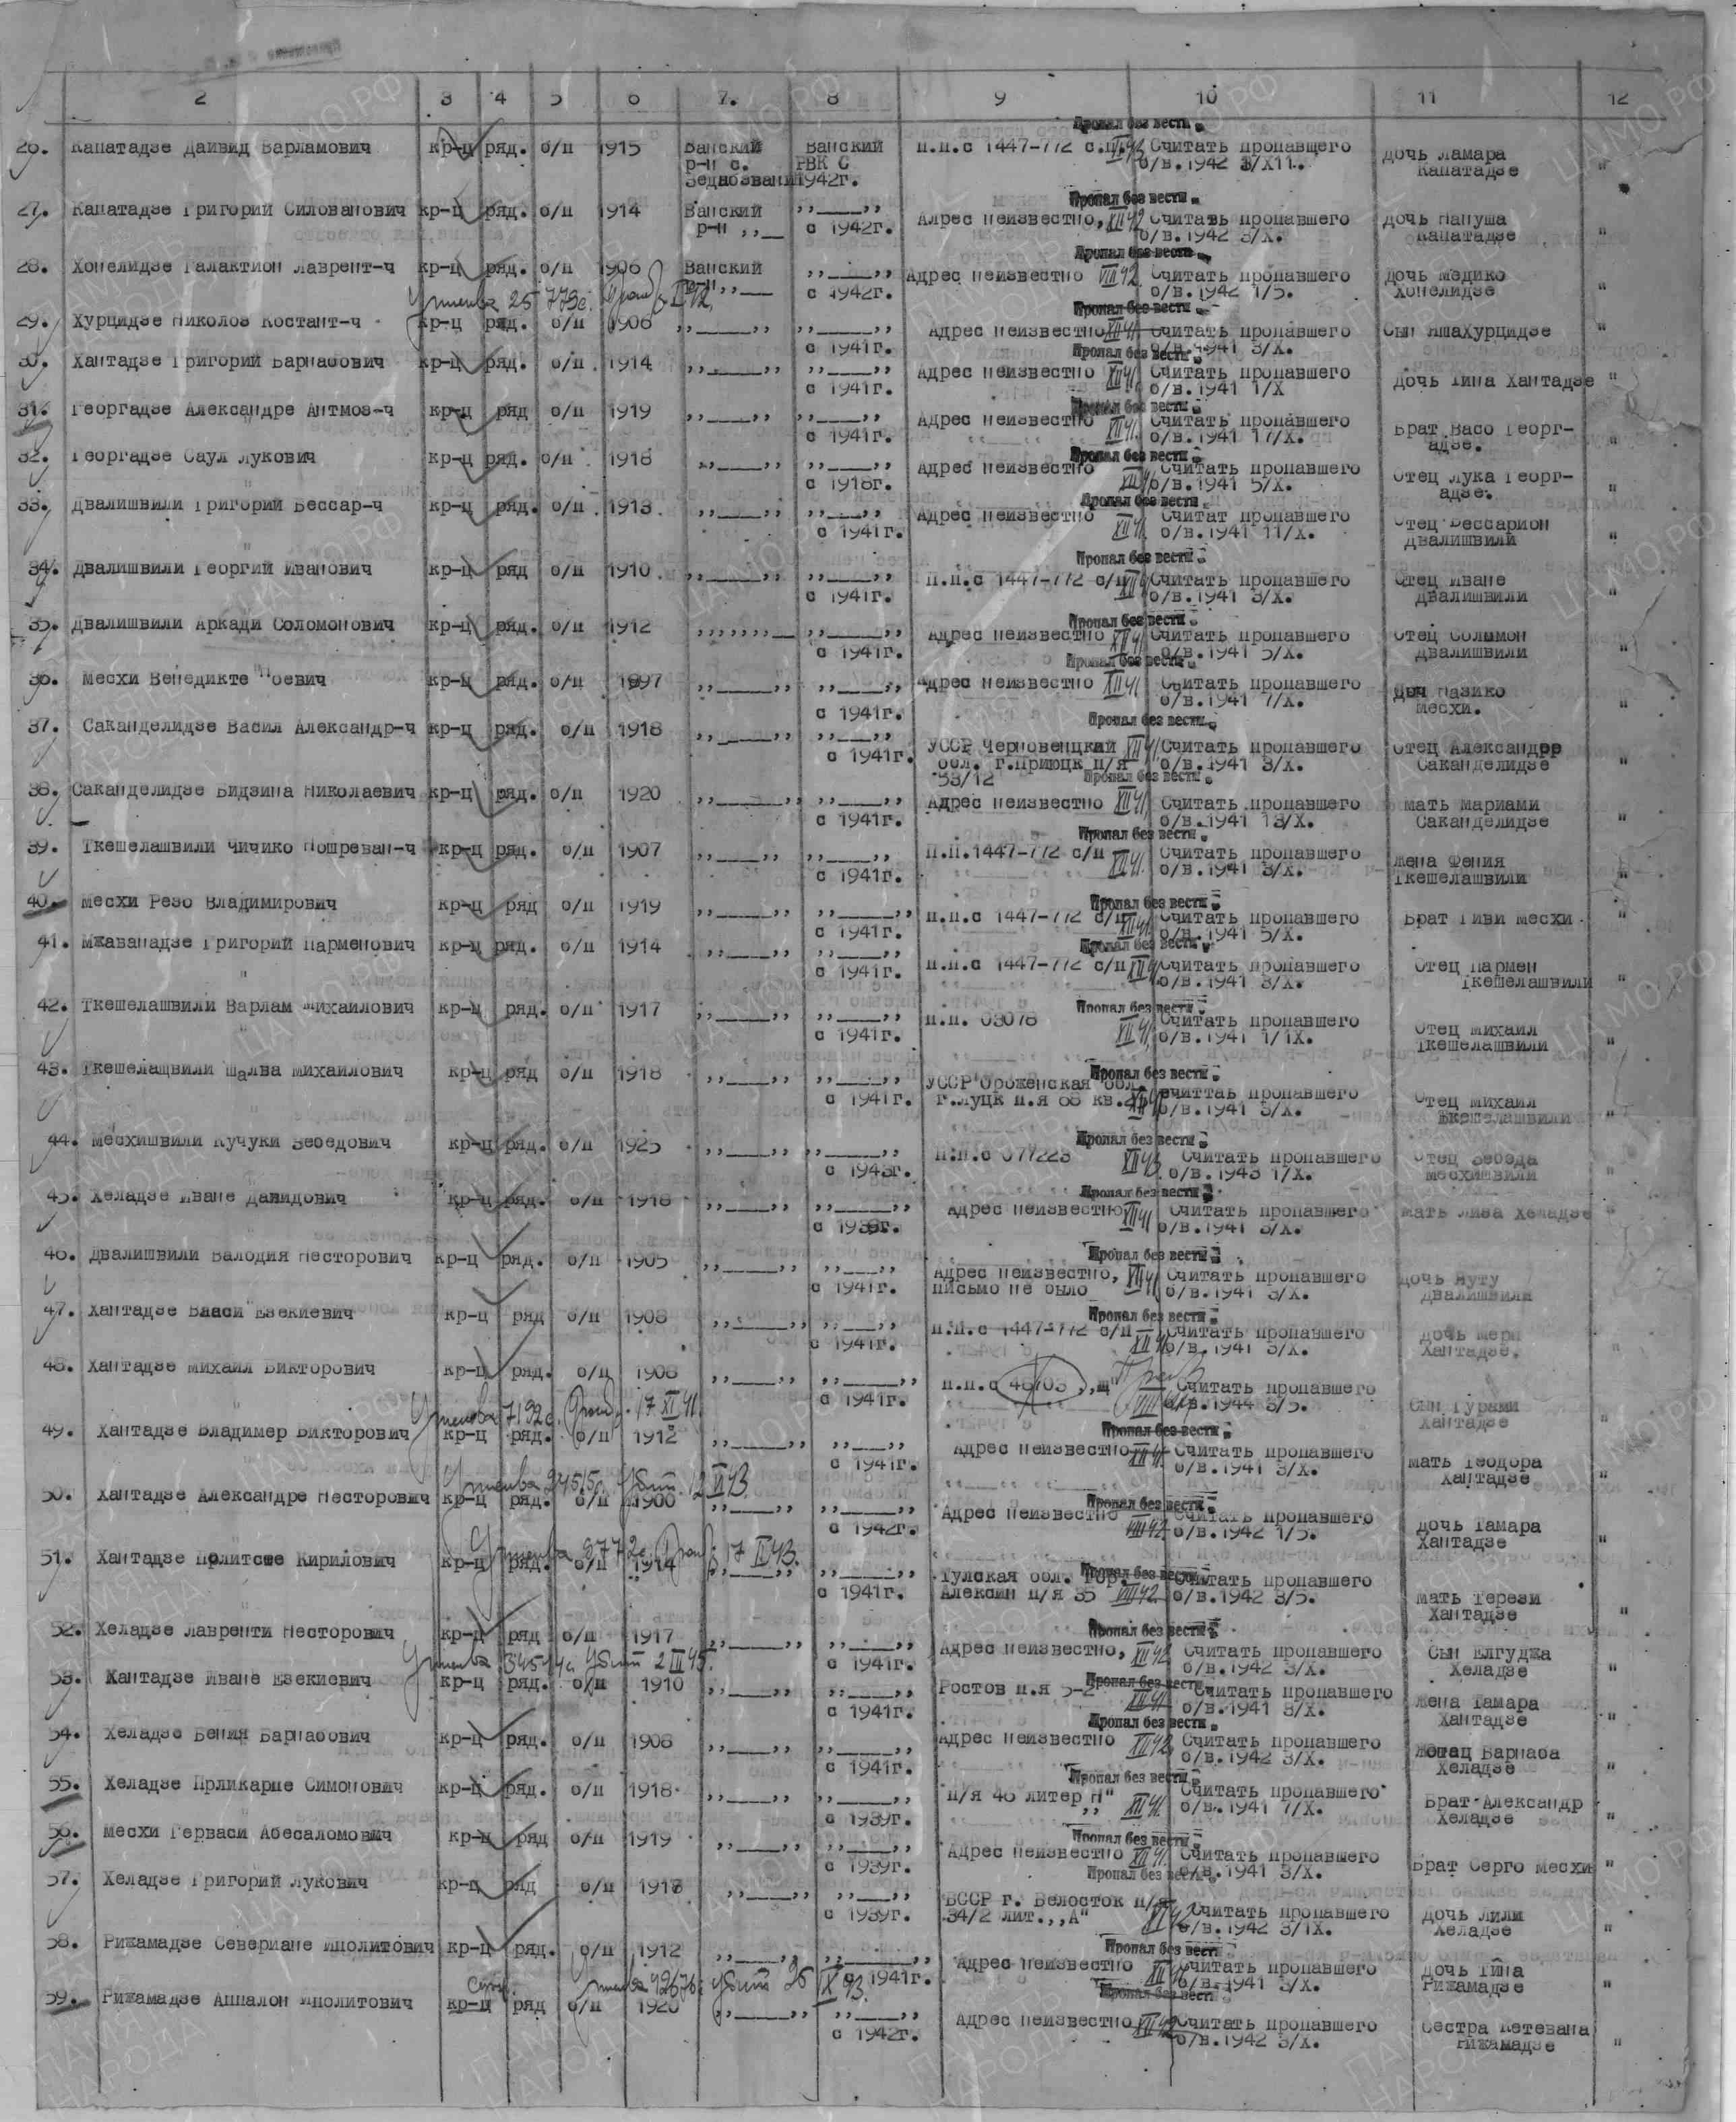 2 3 4 5 6 7. 8 9 10 11 12
Пропал без вести.
26. Капатадзе Давид Варламович кр-ц ряд. б/п 1915 Ванский Ванский п.п.с 1447-772 с.п. Считать пропавшего дочь Ламара
р-н с. РВК с б/в. 1942 3/X11. Капатадзе "
Зедаовани 1942г.
Пропал без вести.
27. Капатадзе Григорий Силованович кр-ц ряд. б/п 1914 Ванский ,,____,, Адрес неизвестно, XII 42 Считать пропавшего дочь Папуша
р-н ,,__ с 1942г. б/в. 1942 3/X. Капатадзе "
Пропал без вести.
28. Хонелидзе Галактион Лаврент-ч кр-ц ряд. б/п 1906 Ванский ,,____,, Адрес неизвестно VIII 42 Считать пропавшего дочь Медико
р-н ,,__ с 1942г. б/в. 1942 1/5. Хонелидзе "
Пропал без вести.
29. Хурцидзе Николоз Костант-ч кр-ц ряд. б/п 1906 ,,____,, ,,____,, Адрес неизвестно XII 41 Считать пропавшего Сын Яша Хурцидзе "
с 1941г. б/в. 1941 3/X.
Пропал без вести.
30. Хантадзе Григорий Варнабович кр-ц ряд. б/п 1914 ,,____,, ,,____,, Адрес неизвестно XII 41 Считать пропавшего
с 1941г. б/в. 1941 1/X дочь Тина Хантадзе "
Пропал без вести.
31. Георгадзе Александре Антмоз-ч кр-ц ряд б/п 1919 ,,____,, ,,____,, Адрес неизвестно Считать пропавшего
с 1941г. XII 41. б/в. 1941 17/X. Брат Васо Георг-
адзе. "
Пропал без вести.
32. Георгадзе Саул Лукович кр-ц ряд. б/п 1918 ,,____,, ,,____,, Адрес неизвестно Считать пропавшего
с 1918г. XII 41 б/в. 1941 5/X. Отец Лука Георг-
адзе. "
Пропал без вести.
33. Двалишвили Григорий Бессар-ч кр-ц ряд. б/п 1913 ,,____,, ,,____,, Адрес неизвестно Считат пропавшего
с 1941г. XII 41. б/в. 1941 11/X. Отец Бессарион
Двалишвили "
Пропал без вести.
34. Двалишвили Георгий Иванович кр-ц ряд б/п 1910 ,,____,, ,,____,, п.п.с 1447-772 с/п Считать пропавшего Отец Иване
с 1941г. б/в. 1941 3/X. Двалишвили "
Пропал без вести.
35. Двалишвили Аркади Соломонович кр-ц ряд. б/п 1912 ,,,,,,,__ ,,____,, Адрес неизвестно XII 41 Считать пропавшего Отец Соломон
с 1941г. б/в. 1941 5/X. Двалишвили "
Пропал без вести.
36. Месхи Венедикте Ноевич кр-ц ряд. б/п 1897 ,,____,, ,,____,, Адрес неизвестно XII 41 Считать пропавшего
с 1941г. б/в. 1941 7/X. Доч Назико
Месхи. "
Пропал без вести.
37. Саканделидзе Васил Александр-ч кр-ц ряд. б/п 1918 ,,____,, ,,____,, УССР Черновенцкий XII 41 Считать пропавшего Отец Александре
с 1941г. обл. г.Приюцк п/я б/в. 1941 3/X. Саканделидзе "
53/12
Пропал без вести.
38. Саканделидзе Бидзина Николаевич кр-ц ряд. б/п 1920 ,,____,, ,,____,, Адрес неизвестно XII 41 Считать пропавшего мать Мариами
с 1941г. б/в. 1941 13/X. Саканделидзе "
Пропал без вести.
39. Ткешелашвили Чичико Пошреван-ч кр-ц ряд. б/п 1907 ,,____,, ,,____,, п.п.1447-772 с/п Считать пропавшего
с 1941г. XII 41. б/в. 1941 3/X. Жена Фения
Ткешелашвили "
Пропал без вести.
40. Месхи Резо Владимирович кр-ц ряд б/п 1919 ,,____,, ,,____,, п.п.с 1447-772 с/п Считать пропавшего Брат Гиви Месхи "
с 1941г. б/в. 1941 5/X.
Пропал без вести.
41. Мжаванадзе Григорий Парменович кр-ц ряд. б/п 1914 ,,____,, ,,____,, п.п.с 1447-772 с/п XII 41 Считать пропавшего Отец Пармен
с 1941г. б/в. 1941 3/X. Ткешелашвили "
Пропал без вести.
42. Ткешелашвили Варлам Михаилович кр-ц ряд. б/п 1917 ,,____,, ,,____,, п.п. 03078 Считать пропавшего
с 1941г. XII 41, б/в. 1941 1/1X. Отец Михаил
Ткешелашвили "
Пропал без вести.
43. Ткешелащвили Шалва Михаилович кр-ц ряд б/п 1918 ,,____,, ,,____,, УССР Ороженская обл.
с 1941г. г.Луцк п.я 68 кв. Считтаь пропавшего Отец Михаил
б/в. 1941 3/X. Ткешелашвили "
Пропал без вести.
44. Месхишвили Кучуки Зебедович кр-ц ряд. б/п 1925 ,,____,, ,,____,, п.п.с 077223 Считать пропавшего Отец Зебэда
с 1943г. XII 43 б/в. 1943 1/X. Месхишвили "
Пропал без вести.
45. Хеладзе Иване Давидович кр-ц ряд. б/п 1918 ,,____,, ,,____,, Адрес неизвестно XII 41 Считать пропавшего мать Лиза Хеладзе "
с 1939г. б/в. 1941 3/X.
Пропал без вести.
46. Двалишвили Валодия Несторович кр-ц ряд. б/п 1905 ,,____,, ,,____,, Адрес неизвестно, XII 41 Считать пропавшего дочь Нуту
с 1941г. письмо не было б/в. 1941 3/X. Двалишвили
Пропал без вести.
47. Хантадзе Власи Езекиевич кр-ц ряд б/п 1908 ,,____,, ,,____,, п.п.с 1447-772 с/п Считать пропавшего дочь Мери
с 1941г. XII 41 б/в. 1941 3/X. Хантадзе.
48. Хантадзе Михаил Викторович кр-ц ряд. б/п 1908 ,,____,, ,,____,, п.п.с 48703 ,,Щ" Считать пропавшего
с 1941г. б/в. 1944 3/5. Сын Гурами
Хантадзе "
Пропал без вести.
49. Хантадзе Владимер Викторович кр-ц ряд. б/п 1912 ,,____,, ,,____,, Адрес неизвестно XII 41 Считать пропавшего мать Теодора
с 1941г. б/в. 1941 3/X. Хантадзе "
Пропал без вести.
50. Хантадзе Александре Несторович кр-ц ряд. б/п 1900 ,,____,, ,,____,, Адрес неизвестно Считать пропавшего дочь Тамара
с 1942г. VIII 42 б/в. 1942 1/5. Хантадзе "
Пропал без вести.
51. Хантадзе Политое Кирилович кр-ц ряд. б/п 1914 ,,____,, ,,____,, Тулская обл. Гор. Считать пропавшего
с 1941г. Алексин п/я 35 VIII 42. б/в. 1942 3/5. мать Терези
Хантадзе "
Пропал без вести.
52. Хеладзе Лавренти Несторович кр-ц ряд б/п 1917 ,,____,, ,,____,, Адрес неизвестно, XII 42 Считать пропавшего Сын Елгуджа
с 1941г. б/в. 1942 3/X. Хеладзе "
Пропал без вести.
53. Хантадзе Иване Езекиевич кр-ц ряд. б/п 1910 ,,____,, ,,____,, Ростов п.я 5-2 Считать пропавшего Жена Тамара
с 1941г. XII 41 б/в. 1941 3/X. Хантадзе "
Пропал без вести.
54. Хеладзе Бения Варнабович кр-ц ряд. б/п 1908 ,,____,, ,,____,, Адрес неизвестно XII 42 Считать пропавшего Отец Варнаба
с 1941г. б/в. 1942 3/X. Хеладзе "
Пропал без вести.
55. Хеладзе Прликарпе Симонович кр-ц ряд. б/п 1918 ,,____,, ,,____,, п/я 46 литер ,,Н" Считать пропавшего Брат Александр
с 1939г. XII 41. б/в. 1941 7/X. Хеладзе "
Пропал без вести.
56. Месхи Герваси Абесаломович кр-ц ряд б/п 1919 ,,____,, ,,____,, Адрес неизвестно XII 41. Считать пропавшего Брат Серго Месхи "
с 1939г. б/в. 1941 3/X.
Пропал без вести.
57. Хеладзе Григорий Лукович кр-ц ряд б/п 1918 ,,____,, ,,____,, БССР г. Белосток п/я Считать пропавшего дочь Лили
с 1939г. 34/2 лит.,,А" б/в. 1942 3/1X. Хеладзе "
Пропал без вести
58. Рижамадзе Севериане Иполитович кр-ц ряд. б/п 1912 ,,____,, ,,____,, Адрес неизвестно XII 41 Считать пропавшего дочь Тина
с 1941г. б/в. 1941 3/X. Рижамадзе "
Пропал без вести
59. Рижамадзе Аппалон Иполитович кр-ц ряд б/п 1920 ,,____,, ,,____,, Адрес неизвестно XII 42 Считать пропавшего Сестра Кетевана
с 1942г. б/в. 1942 3/X. Рижамадзе "